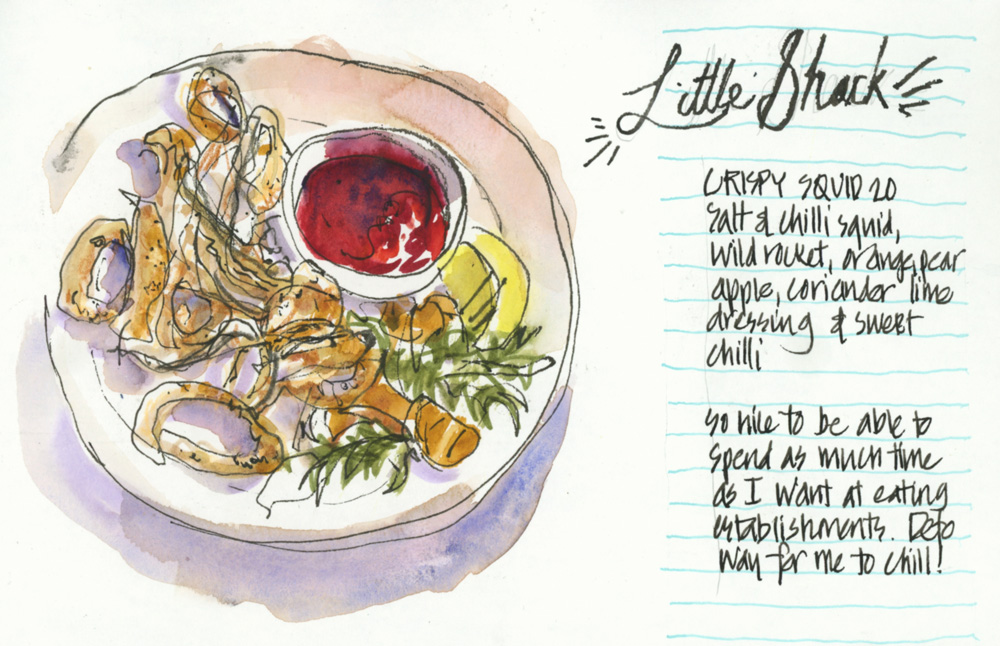 Little Shack
CRISPY SQUID 20
Salt & chilli squid,
wild rocket, orange, pear
apple, coriander lime
dressing & sweet
chilli
So nice to be able to
spend as much time
as I want at eating
establishments. Defo
way for me to chill!